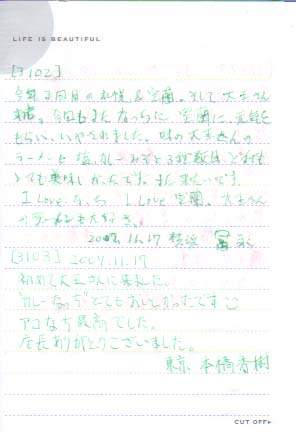 LIFE IS BEAUTIFUL
[3102]
今年2回目の札幌&室蘭。そして大王さん
来店。今回もまたなっちに、室蘭に、元気を
もらい、いやされました。味の大王さんの
ラーメンは塩、カレーみそと3種類
とても美味しかったです。また来たいです。
I Love なっち I Love 室蘭。大王さん
のラーメンも大好き。
2007.11.17 横浜
[3103] 2007.11.17
初めて大王さんに来ました。
"カレーなっち"とてもおいしかったです
アコなち最高でした。
店長ありがとうございました。
東京 本橋秀樹
CUT OFF